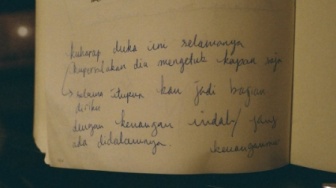 kuharap duka ini selamanya
kupersilakan dia mengetuk kapan saja
→ sebab itupun kau jadi bagian
diriku
dengan kenangan indah/ yang
ada didalamnya
kenanganmu